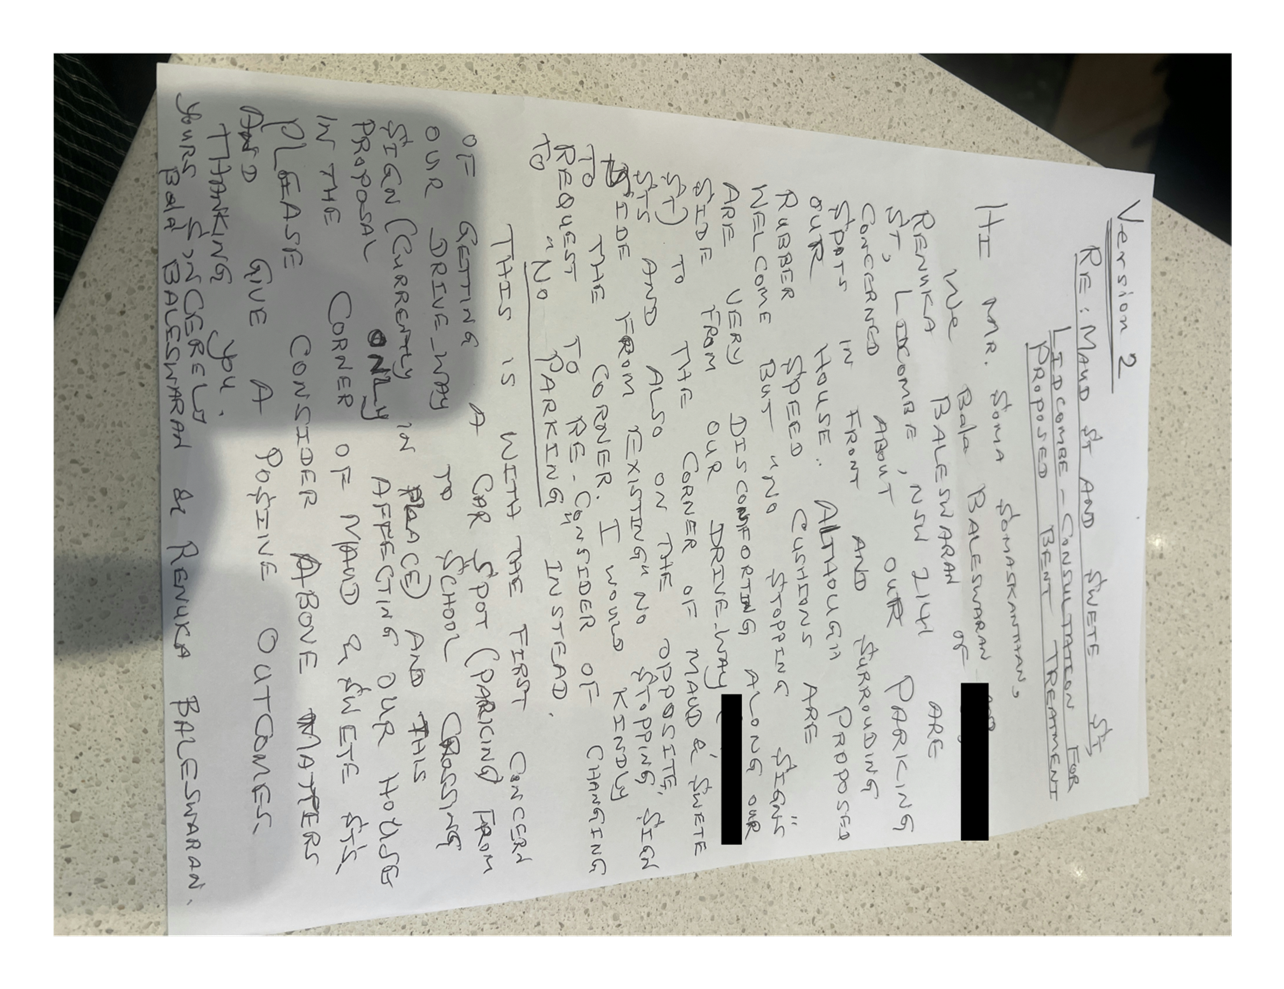 Version 2
RE: MAUD ST AND SWETE ST
LIDCOMBE - CONSULTATION FOR
PROPOSED BENT TREATMENT
HI MR. SOMA SOMASKANTHAN,
WE Bala BALESWARAN
RENUKA BALESWARAN OF
ST, LIDCOMBE, NSW 2141 ARE
CONCERNED ABOUT OUR PARKING
SPOTS IN FRONT AND SURROUDING
OUR HOUSE. ALTHOUGH PROPOSED
RUBBER SPEED CUSHIONS ARE
WELCOME BUT "NO STOPPING SIGNS"
ARE VERY DISCONFORTING ALONG OUR
SIDE FROM OUR DRIVE-WAY
ST) TO THE CORNER OF MAUD & SWETE
STS AND ALSO ON THE OPPOSITE
SIDE FROM EXISTING "NO STOPPING" SIGN
TO THE CORNER. I WOULD KINDLY
REQUEST TO RE-CONSIDER OF CHANGING
TO "NO PARKING" INSTEAD.
THIS IS WITH THE FIRST CONCERN
OF GETTING A CAR SPOT (PARKING) FROM
OUR DRIVE-WAY TO SCHOOL CROSSING
SIGN (CURRENTLY IN PLACE) AND THIS
PROPOSAL ONLY AFFECTING OUR HOUSE
IN THE CORNER OF MAUD & SWETE STS.
PLEASE CONSIDER ABOVE MATTERS
AND GIVE A POSIVE OUTCOMES.
THANKING you.
yours SINCERELY
Bala BALESWARAN & RENUKA BALESWARAN.